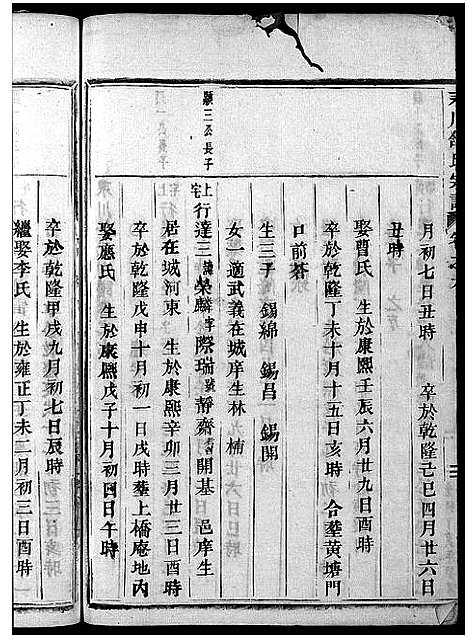 月初七日丑時 卒於乾隆己巳四月廿六日
丑時
娶曹氏 生於康熙壬辰六月廿九日酉時
卒於乾隆丁未十月十五日亥時 合塟黃塘門
口前荅
生三子 錫綿 錫昌 錫開
女一適武義在城庠生林楠
顯三公長子
上宅行達三諱榮麟字際瑞號靜齋 開基 邑庠生
居在城河東 生於康熙辛卯三月廿三日酉時
卒於乾隆戊申十月初一日戌時塟上橋庵地內
娶應氏 生於康熙戊子十月初四日午時
卒於乾隆甲戌九月初七日辰時
繼娶李氏 生於雍正丁未二月初三日酉時